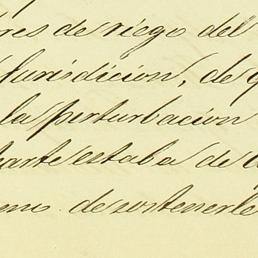 res de riego del
Jurisdicion, de
la perturbacion
parte estaba de
de sostenerle